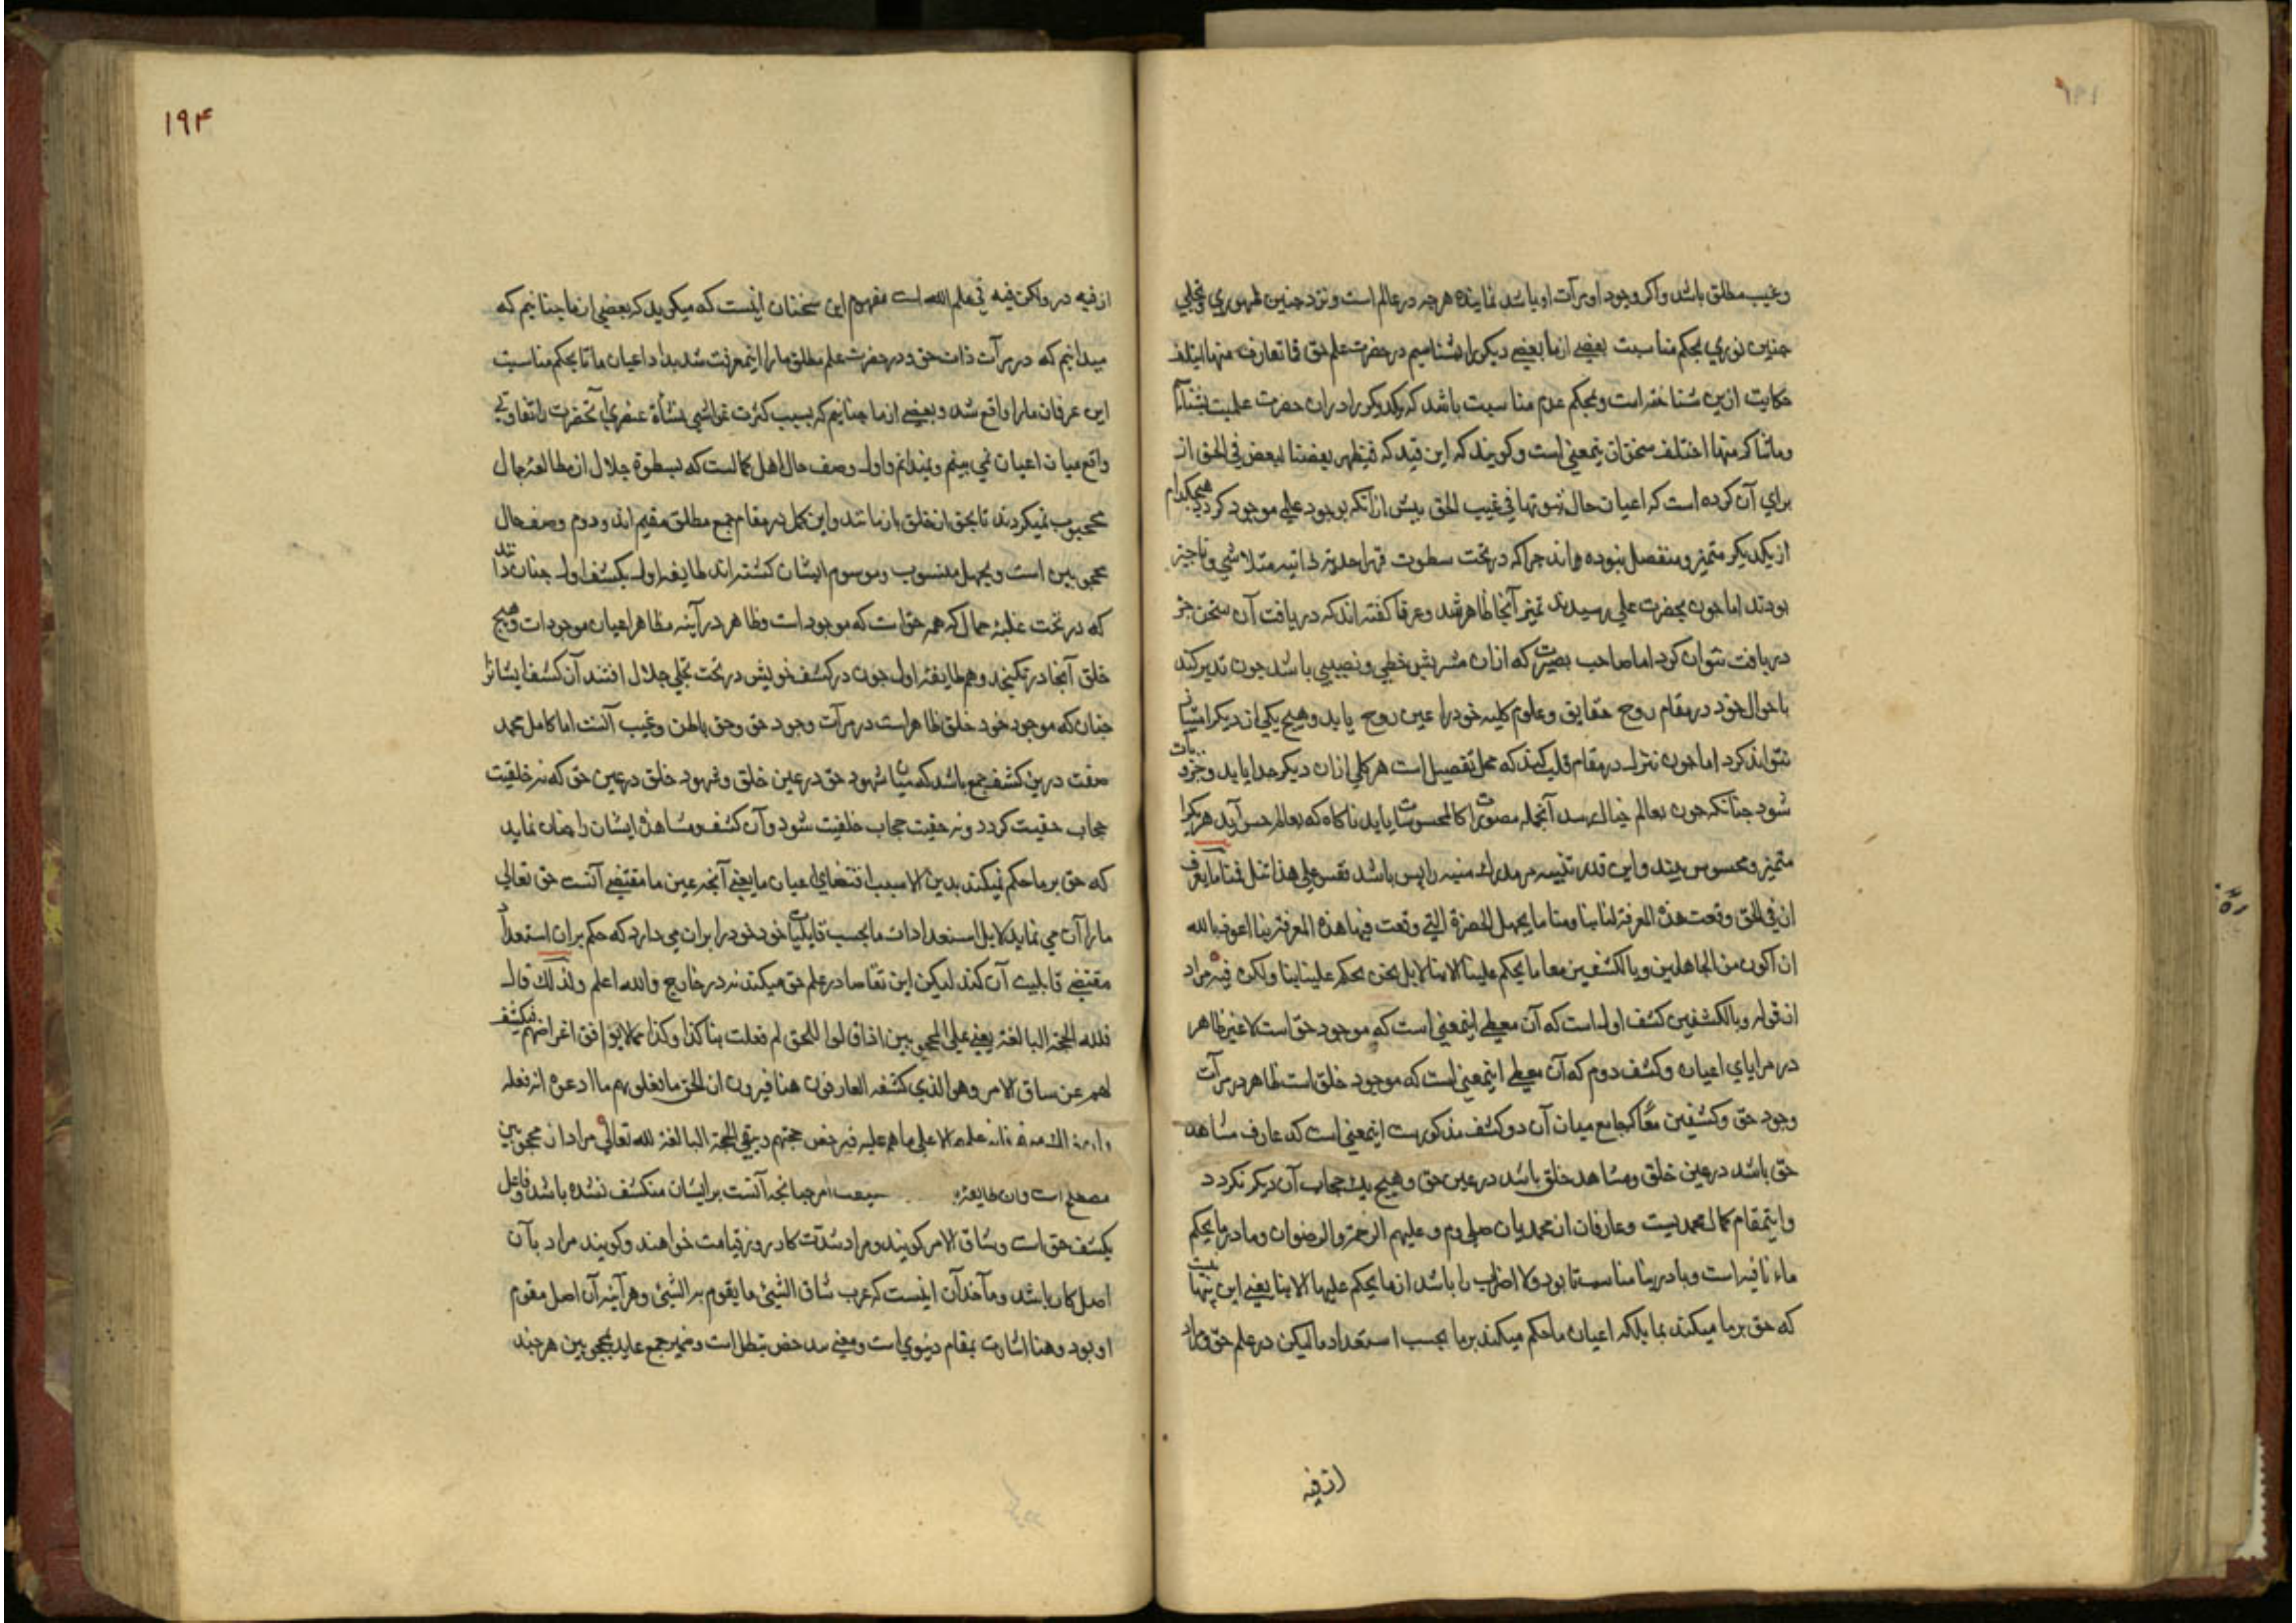 وغیب مطلق باشد واکر وجود او مرآت او باشد نماینده هرچه در عالم است ونزد چنین ظهوری وتجلی
چنین نوری بحکم مناسبت بعضی از ما بعضی دیکر را بشناسیم در حضرت علم حق فما تعارف منها ایتلف
حکایت ازین شناختن است وبحکم عدم مناسبت باشد که یکدیکر را در آن حضرت علمیت
وما تناکر منها اختلف سخن از ینمعنی است وکویند که این قید که فیظهر بعضنا لبعض فی الحق از
برای آن کرده است که اعیان حال ثبوتها فی غیب الحق بیش از آنکه بوجود علمی موجود کردد هیچکدام
از یکدیکر متمیز ومنفصل نبوده اند چرا که در تحت سطوت قهر احدیة ذاتیه متلاشی وناچیز
بودند اما چون بحضرت علمی رسیدند تمیز آنجا ظاهر شد وعرفا کفته اند که دریافت آن سخن جز
دریافت نتوان کرد اما صاحب بصیرت که از آن مشربش حظی ونصیبی باشد چون تدبر کند
باحوال خود در مقام روح حقایق وعلوم کلیه خود را عین روح یابد وهیچ یکی از دیکر امتیاز
نتواند کرد اما چون تنزل در مقام قلب کند که محل تفصیل است هر کلی از آن دیکر جدا یابد وجزویات
شود چنانکه چون بعالم خیال رسد آنجمله مصورت را کالمحسوسات یابد ناکاه که بعالم حس آید هر یکرا
متمیز ومحسوس بیند واین قدر تنبیه مر مدرک منبه را بس باشد فقس علی هذا فمنا من یعرف
ان فی الحق وقعت هذه المعرفة لنا بنا ومنا من یجهل الحضرة التی وقعت فیها هذه المعرفة بنا اعوذ بالله
ان اکون من الجاهلین وبالکشفین معا ما یحکم علینا الا بنا لا بل نحن نحکم علینا بنا ولکن فیه مراد
از قوله وبالکشفین کشف اول است که آن معطی اینمعنی است که موجود حق است لا غیر ظاهر
در مرایای اعیان وکشف دوم که آن معطی اینمعنی است که موجود خلق است ظاهر در مرآت
وجود حق وکشفین معا که جامع میان آن دو کشف مذکورست اینمعنی است که عارف مشاهد
حق باشد در عین خلق ومشاهد خلق باشد در عین حق وهیچ یک حجاب آن دیکر نکردد
واینمقام کمال محمدیست وعارفان از محمدیان صلی وم وعلیهم الرحمة والرضوان وما در ما یحکم
ماء نافیه است وبا در بنا مناسبت تا بود ولا اضراب را باشد از ما یحکم علینا الا بنا یعنی این نیست
که حق بر ما میکند بما بلکه اعیان ما حکم میکند بر ما بحسب استعداد ما لیکن در علم حق ومراد
از فیه
۱۹۴
از فیه در ولکن فیه فی علم الله است مفهوم این سخنان اینست که میکوید که بعضی از ما چنانیم که
میدانیم که در مرآت ذات حق ودر حضرت علم مطلق ما را اینمعرفت شد بداد اعیان ما تا بحکم مناسبت
این عرفان ما را واقع شد وبعضی از ما چنانیم که بسبب کثرت غواشی نشأة عنصری آنحضرت را تعاوقی
واقع میان اعیان نمی بینم ونمیدانم واول وصف حال اهل کمالست که بسطوة جلال از مطالعه جمال
محجوب نمیکردند تا بحق از خلق باز مانند واین کمل در مقام جمع مطلق مقیم اند ودوم وصف حال
محجوبین است وبجهل منسوب وموسوم ایشان کشته اند طایفه اول بکشف اول چنان دانند
که در تحت غلبه جمال که همه حق است که موجود است وظاهر در آینه مظاهر اعیان موجودات وهیچ
خلق آنجا در نکنجد وهم طایفه اول چون در کشف خویش در تحت تجلی جلال افتند آن کشف ایشانرا
چنان که موجود خود خلق ظاهر است در مرآت وجود حق وحق باطن وغیب آنست اما کامل محمد
صفت درین کشف جمع باشد که میان شهود حق در عین خلق وشهود خلق در عین حق که نه خلقیت
حجاب حقیت کردد ونه حقیت حجاب خلقیت شود وآن کشف ومشاهده ایشان را چنان نماید
که حق بر ما حکم نمیکند بدین الا بسبب اقتضای اعیان ما یعنی آنچه عین ما مقتضی آنست حق تعالی
ما را آن می نماید لا بل استعدادات ما بحسب قابلیات خود خود را بر آن می دارد که حکم بر آن استعداد
مقتضی قابلیت آن کند لیکن این تقاضا در علم حق میکند نه در خارج والله اعلم ولذلک قال
فلله الحجة البالغة یعنی علی المحجوبین اذا قالوا للحق لم فعلت بنا کذا وکذا مما لا یوافق اغراضهم فیکشف
لهم عن ساق الامر وهو الذی کشفه العارفون هنا فیرون ان الحق ما فعل بهم ما ادعوه انه فعله
وان ذلک منهم فانه علمهم الا علی ما هم علیه فیدحض حجتهم ویبقی الحجة البالغة لله تعالی مراد از محجوبین
مصطلح است وآن طایفه حقیقت امر چنانچه آنست بر ایشان منکشف نشده باشد وفاعل
یکشف حق است وساق الامر کویند ومراد شدت کار روز قیامت خواهند وکویند مراد بآن
اصل کار باشد ومآخذ آن اینست که عرب ساق الشیئ ما یقوم به الشیئ وهر آینه آن اصل مقوم
او بود وهنا اشارت بمقام دنیوی است ومعنی یدحض یبطل است وضمیر جمع عاید بمحجوبین هر چند